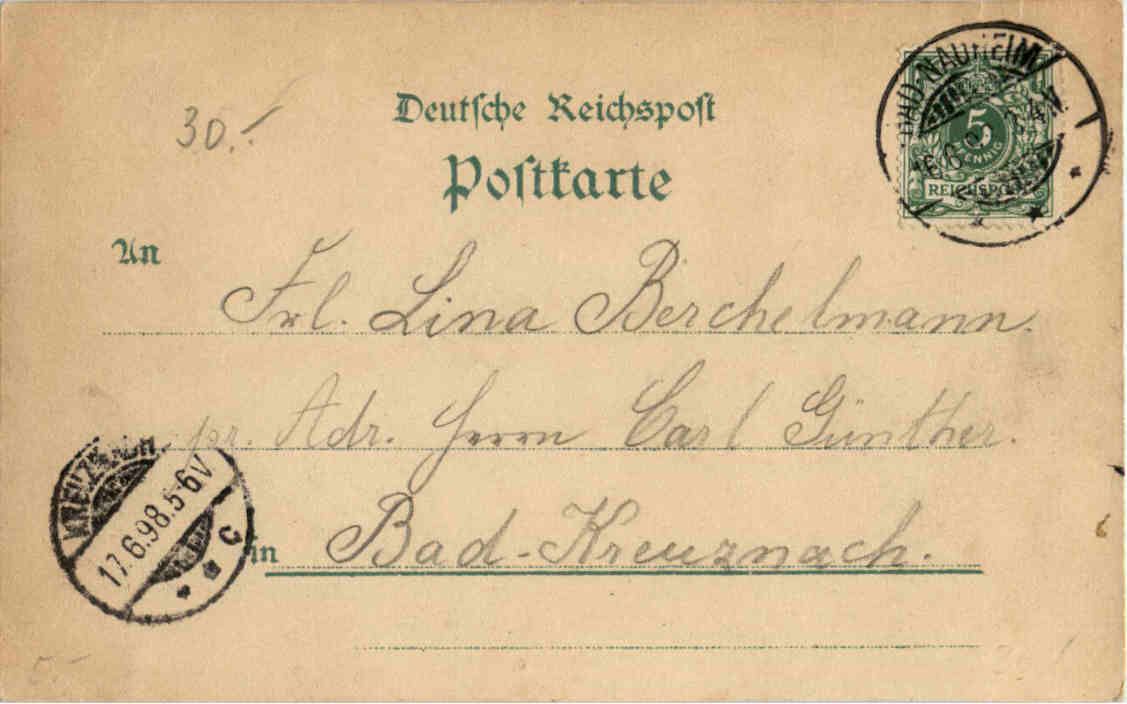 BAD-NAUHEIM
5
PFENNIG
REICHSPOST
Deutsche Reichspost
30.-
Postkarte
An
Frl. Lina Berchelmann.
pr. Adr. Herrn Carl Günther.
KREUZNACH
17.6.98.5-6V
c
in Bad-Kreuznach.